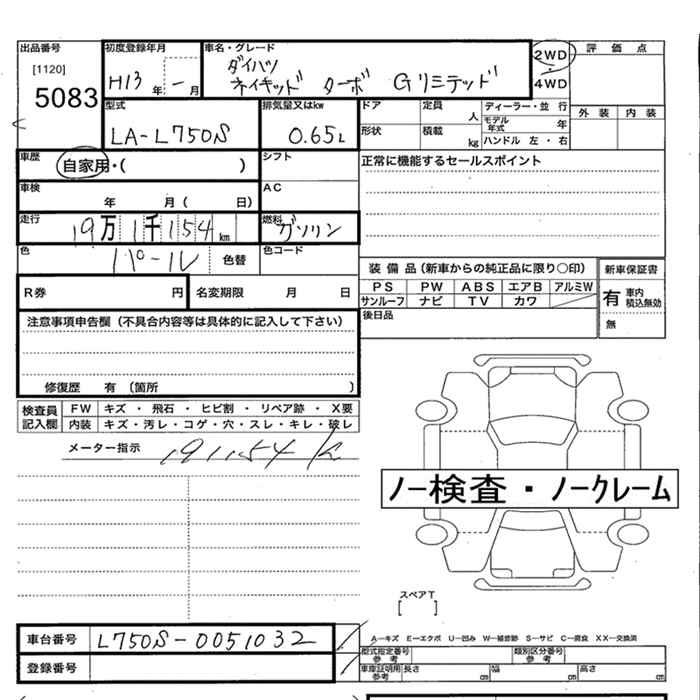 出品番号 初度登録年月 車名・グレード 2WD 評価点
[1120] ダイハツ
5083 H13年 ー月 ネイキッド ターボ Gリミテッド 4WD
型式 排気量又はkw ドア 定員 人 ディーラー・並行 外装 内装
LA-L750S 0.65L 形状 積載 kg モデル年式 年
ハンドル 左・右
車歴 自家用・( ) シフト 正常に機能するセールスポイント
車検 年 月( 日) AC
走行 19万1千154km 燃料 ガソリン
色 パール 色替 色コード
装備品(新車からの純正品に限り〇印) 新車保証書
PS PW ABS エアB アルミW 有 車内積込無効
サンルーフ ナビ TV カワ
R券 円 名変期限 月 日 後日品 無
注意事項申告欄(不具合内容等は具体的に記入して下さい)
修復歴 有 (箇所 )
検査員記入欄 FW キズ・飛石・ヒビ割・リペア跡・X要
内装 キズ・汚レ・コゲ・穴・スレ・キレ・破レ
メーター指示 191154k
ノー検査・ノークレーム
スペアT
[ ]
車台番号 L750S-0051032
A-キズ E-エクボ U-凹み W-補修跡 S-サビ C-腐食 XX-交換済
型式指定番号参考 類別区分番号参考
登録番号 車庫証明用参考 長さ cm 幅 cm 高さ cm